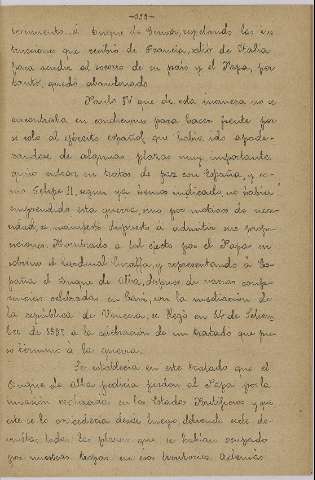 -323-
Duque de Guisa, respetando las ins-
trucciones que recibió de Francia, salió de Italia
para acudir al socorro de su país y el Papa, por
tanto, quedó abandonado.
Paulo IV que de esta manera no se
encontraba en condiciones para hacer frente por
si solo al ejército español, que había ido apode-
randose de algunas plazas muy importantes,
quiso entrar en tratos de paz con España, y co-
mo Felipe II, segun ya hemos indicado, no había
emprendido esta guerra, sino por motivos de nece-
sidad, se manifestó dispuesto á admitir sus propo-
siciones. Nombrado á tal efecto por el Papa su
sobrino el Cardenal Caraffa, y representando á Es-
paña el Duque de Alba, despues de varias confe-
rencias celebradas en Cavi, con la mediación de
la república de Venecia, se llegó en 14 de Setiem-
bre de 1557 á la celebración de un tratado que pu-
so término á la guerra.
Se establecía en este tratado que el
Duque de Alba pediría perdon al Papa por la
invasión realizada en los Estados Pontificios y que
este se lo concedería desde luego debiendo
todas las plazas que se habían ocupado
por nuestras tropas en ese territorio. Además